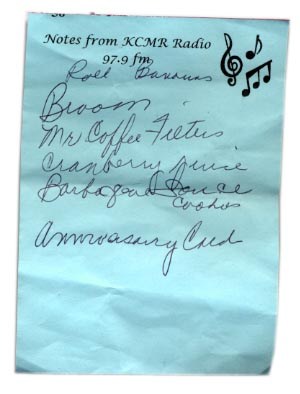 Notes from KCMR Radio
97.9 fm
Roll Bananas
Broom
Mr Coffee Filters
Cranberry
Sauce
Cookies
Anniversary Card